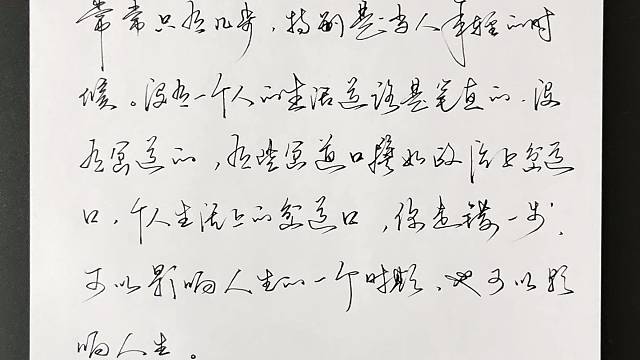 常常只有几步，特别是当人年轻的时
候。没有一个人的生活道路是笔直的，没
有岔道的，有些岔道口譬如政治上岔道
口，个人生活上的岔道口，你走错一步，
可以影响人生的一个时期，也可以影
响人生。